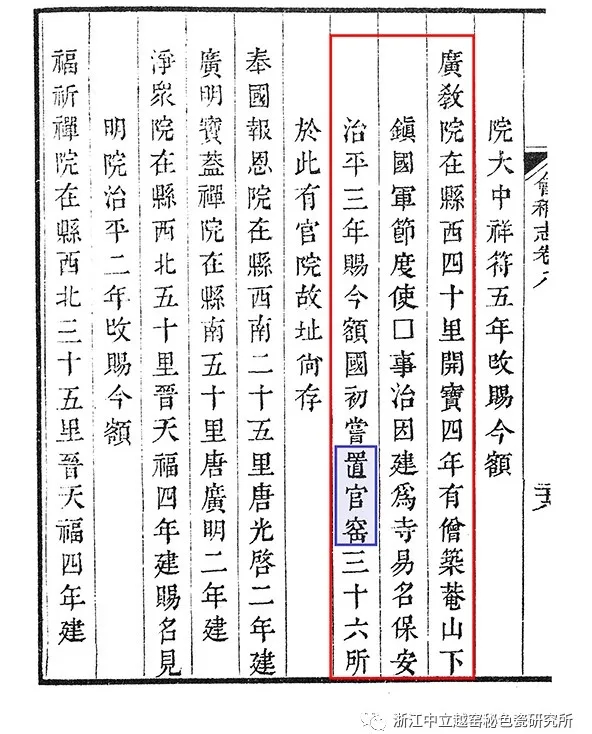 會稽志卷八
院大中祥符五年改賜今額
廣教院在縣西四十里開寶四年有僧築菴山下
鎮國軍節度使囗事治因建爲寺易名保安
治平三年賜今額國初嘗置官窑三十六所
於此有官院故址尙存
奉國報恩院在縣西南二十五里唐光啓二年建
廣明寶蓋禪院在縣南五十里唐廣明二年建
淨衆院在縣西北五十里晉天福四年建賜名見
明院治平二年改賜今額
福祈禪院在縣西北三十五里晉天福四年建
浙江中立越窑秘色瓷研究所